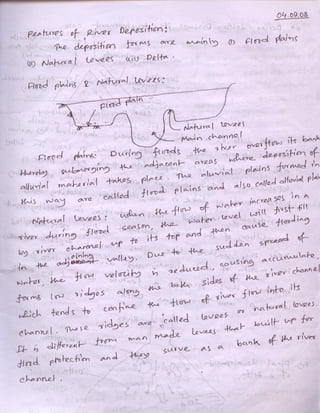 04.09.08
Features of River Deposition:
The deposition forms are mainly (i) Flood plains
(ii) Natural Levees (iii) Delta.
Flood plains & Natural Levees:
Flood plain
Natural Levees
Main channel
Flood plains: During floods the river overflow its bank
thereby submerging the adjacent areas where deposition of
alluvial material takes place. The aluvial plains formed in
this way are called flood plains and also called alluvial plain
Natural Levees: when the flow of water increases in a
river during flood season, the water level will first fill
by river channel up to its top and then cause flooding
in the adjoining valley. Due to the sudden spread of
water, the flow velocity is reduced, causing accumulate
forms low ridges along the both sides of the river channel
which tends to confine the flow of river flow into its
channel. These ridges are called levees or natural levees.
It is different from man made levees that built up for
flood protection and they surve as a bank of the river
channel.